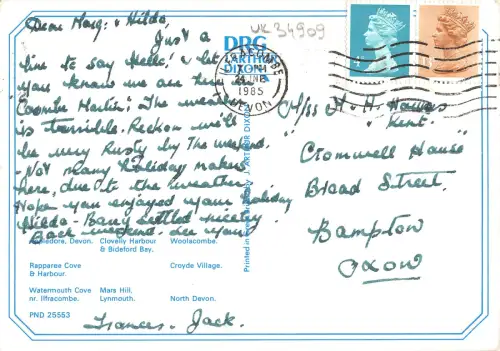 Dear Marg: & Hilda,
Just a
line to say Hello, & let
you know we are here
"Coombe Martin". The weather
is terrible. Reckon we'll
be very Rusty by the weekend.
- Not many holiday makers
here, due to the weather.
Hope you enjoyed your holiday
Hilda - Barry settled nicely
Back weekend. See you
Frances. Jack.
UK 34909
DRG
ARTHUR
DIXON
ILFRACOMBE
24 JNE
1985
DEVON
M. H. Hawes
Kent.
"Cromwell House"
Broad Street.
Bampton
Oxon
Printed in
J. ARTHUR DIXON
Appledore, Devon.
Clovelly Harbour
& Bideford Bay.
Woolacombe.
Rapparee Cove
& Harbour.
Croyde Village.
Watermouth Cove
nr. Ilfracombe.
Mars Hill,
Lynmouth.
North Devon.
PND 25553